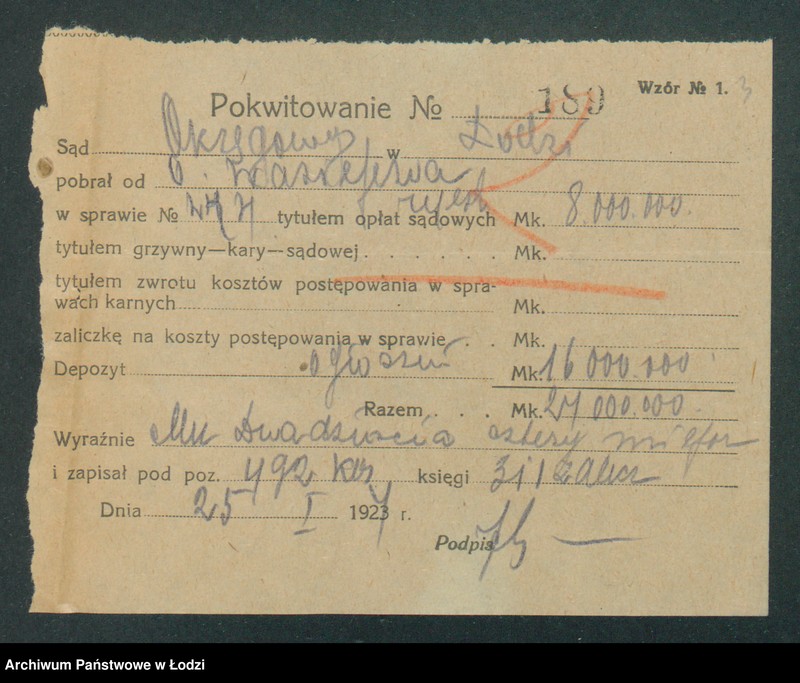 Wzór № 1. 3
Pokwitowanie № 189
Sąd Okręgowy w Łodzi
pobrał od
w sprawie № tytułem opłat sądowych Mk. 8.000.000.
tytułem grzywny—kary—sądowej Mk.
tytułem zwrotu kosztów postępowania w spra-
wach karnych Mk.
zaliczkę na koszty postępowania w sprawie Mk.
Depozyt ogłoszeń Mk. 16 000.000
Razem Mk. 24 000.000
Wyraźnie Mk Dwadzieścia cztery miljon
i zapisał pod poz. 492 księgi
Dnia 25 I 1924 r.
Podpis
Archiwum Państwowe w Łodzi